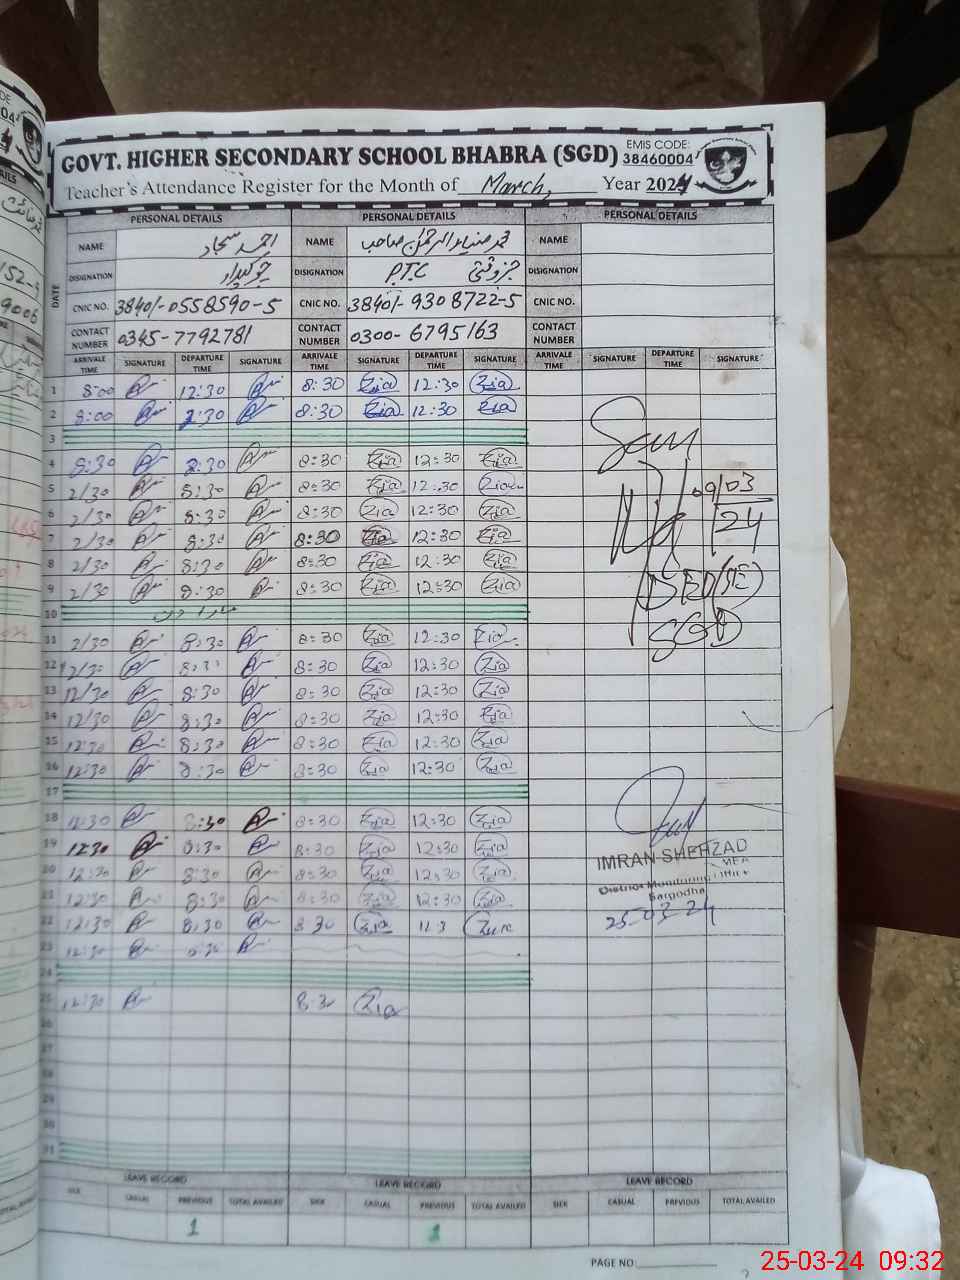 GOVT. HIGHER SECONDARY SCHOOL BHABRA (SGD) EMIS CODE: 38460004
Teacher's Attendance Register for the Month of March, Year 2024
PERSONAL DETAILS PERSONAL DETAILS PERSONAL DETAILS
NAME احمد سجاد NAME محمد ضیاء الرحمن صاحب NAME
DISIGNATION چوکیدار DISIGNATION P.T.C جزوقتی DISIGNATION
DATE
CNIC NO. 38401-0558590-5 CNIC NO. 38401-9308722-5 CNIC NO.
CONTACT NUMBER 0345-7792781 CONTACT NUMBER 0300-6795163 CONTACT NUMBER
ARRIVALE TIME SIGNATURE DEPARTURE TIME SIGNATURE ARRIVALE TIME SIGNATURE DEPARTURE TIME SIGNATURE ARRIVALE TIME SIGNATURE DEPARTURE TIME SIGNATURE
1 8:00 12:30 8:30 Zia 12:30 Zia
2 8:00 2:30 8:30 Zia 12:30 Zia
3
4 8:30 2:30 8:30 Zia 12:30 Zia
5 2/30 8:30 8:30 Zia 12:30 Zia
6 2/30 8:30 8:30 Zia 12:30 Zia
7 2/30 8:30 8:30 Zia 12:30 Zia
8 2/30 8:30 8:30 Zia 12:30 Zia
9 2/30 8:30 8:30 Zia 12:30 Zia
09/03
24
DED(SE)
SGD
10
11 2/30 8:30 8:30 Zia 12:30 Zia
12 2/30 8:3 8:30 Zia 12:30 Zia
13 12/30 8:30 8:30 Zia 12:30 Zia
14 12/30 8:30 8:30 Zia 12:30 Zia
15 12:30 8:30 8:30 Zia 12:30 Zia
16 12:30 8:30 8:30 Zia 12:30 Zia
17
18 12:30 8:30 8:30 Zia 12:30 Zia
19 12:30 8:30 8:30 Zia 12:30 Zia
20 12:30 8:30 8:30 Zia 12:30 Zia
21 12:30 8:30 8:30 Zia 12:30 Zia
22 12:30 8:30 8 30 Zia 12:3
23 12:30 8:30
24
25 12:30 8:3 Zia
IMRAN SHEHZAD
MEA
District Monitoring Office
Sargodha
25-03-24
26
27
28
29
30
31
LEAVE RECORD LEAVE RECORD LEAVE RECORD
SICK CASUAL PREVIOUS TOTAL AVAILED SICK CASUAL PREVIOUS TOTAL AVAILED SICK CASUAL PREVIOUS TOTAL AVAILED
1 1
PAGE NO
25-03-24 09:32